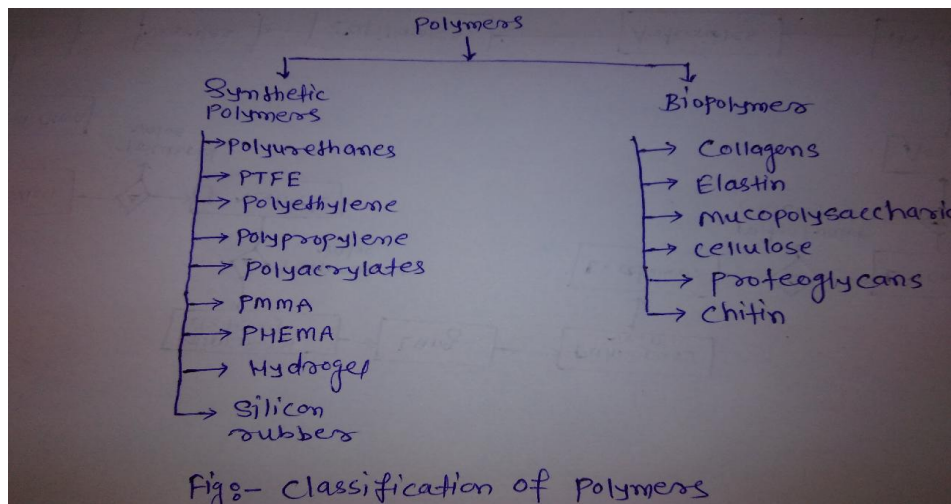 Polymers
Synthetic
Polymers
Polyurethanes
PTFE
Polyethylene
Polypropylene
Polyacrylates
PMMA
PHEMA
Hydrogel
Silicon
rubber
Biopolymer
Collagens
Elastin
mucopolysaccharid
cellulose
Proteoglycans
chitin
Fig:- Classification of Polymers